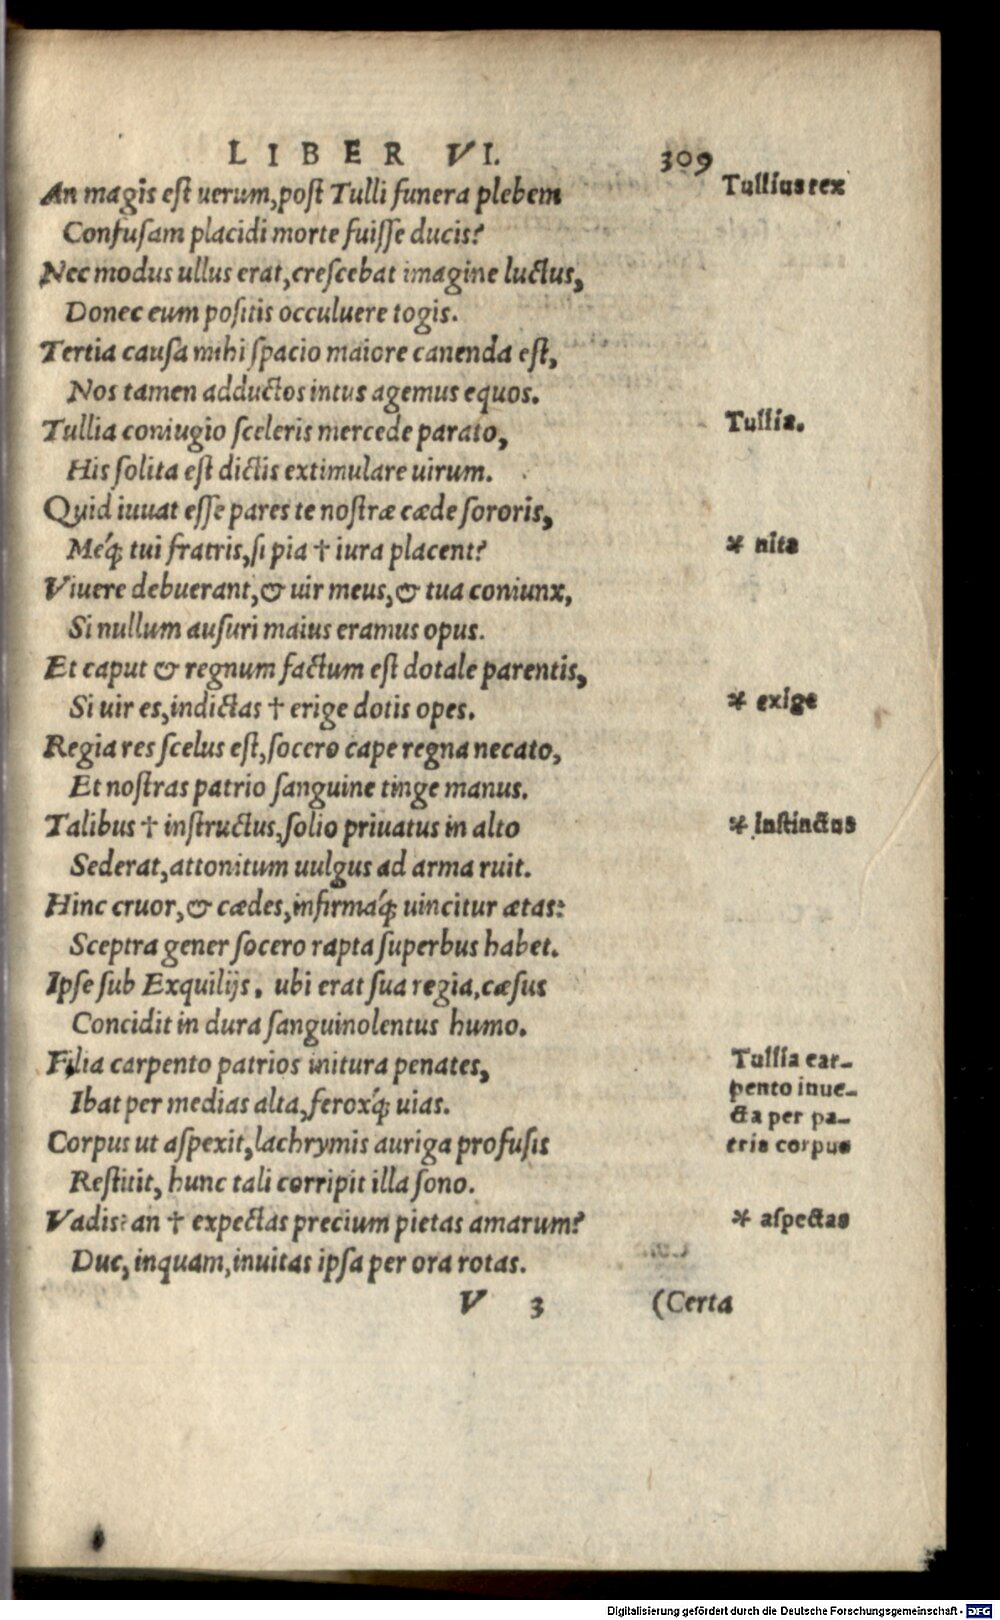 LIBER VI. 309
An magis est uerum, post Tulli funera plebem
Confusam placidi morte fuisse ducis?
Nec modus ullus erat, crescebat imagine luctus,
Donec eum positis occuluere togis.
Tertia causa mihi spacio maiore canenda est,
Nos tamen adductos intus agemus equos.
Tullia coniugio sceleris mercede parato,
His solita est dictis extimulare uirum.
Quid iuuat esse pares te nostræ cæde sororis,
Meq́; tui fratris, si pia † iura placent?
Viuere debuerant, & uir meus, & tua coniunx,
Si nullum ausuri maius eramus opus.
Et caput & regnum factum est dotale parentis,
Si uir es, indictas † erige dotis opes.
Regia res scelus est, socero cape regna necato,
Et nostras patrio sanguine tinge manus.
Talibus † instructus, solio priuatus in alto
Sederat, attonitum uulgus ad arma ruit.
Hinc cruor, & cædes, infirmaq́; uincitur ætas:
Sceptra gener socero rapta superbus habet.
Ipse sub Exquilijs, ubi erat sua regia, cæsus
Concidit in dura sanguinolentus humo.
Filia carpento patrios initura penates,
Ibat per medias alta, feroxq́; uias.
Corpus ut aspexit, lachrymis auriga profusis
Restitit, hunc tali corripit illa sono.
Vadis? an † expectas precium pietas amarum?
Duc, inquam, inuitas ipsa per ora rotas.
V 3 (Certa
Tullius rex
Tullia.
* uita
* exige
* instinctus
Tullia car-
pento inue-
cta per pa-
tris corpus
* aspectas
Digitalisierung gefördert durch die Deutsche Forschungsgemeinschaft - DFG